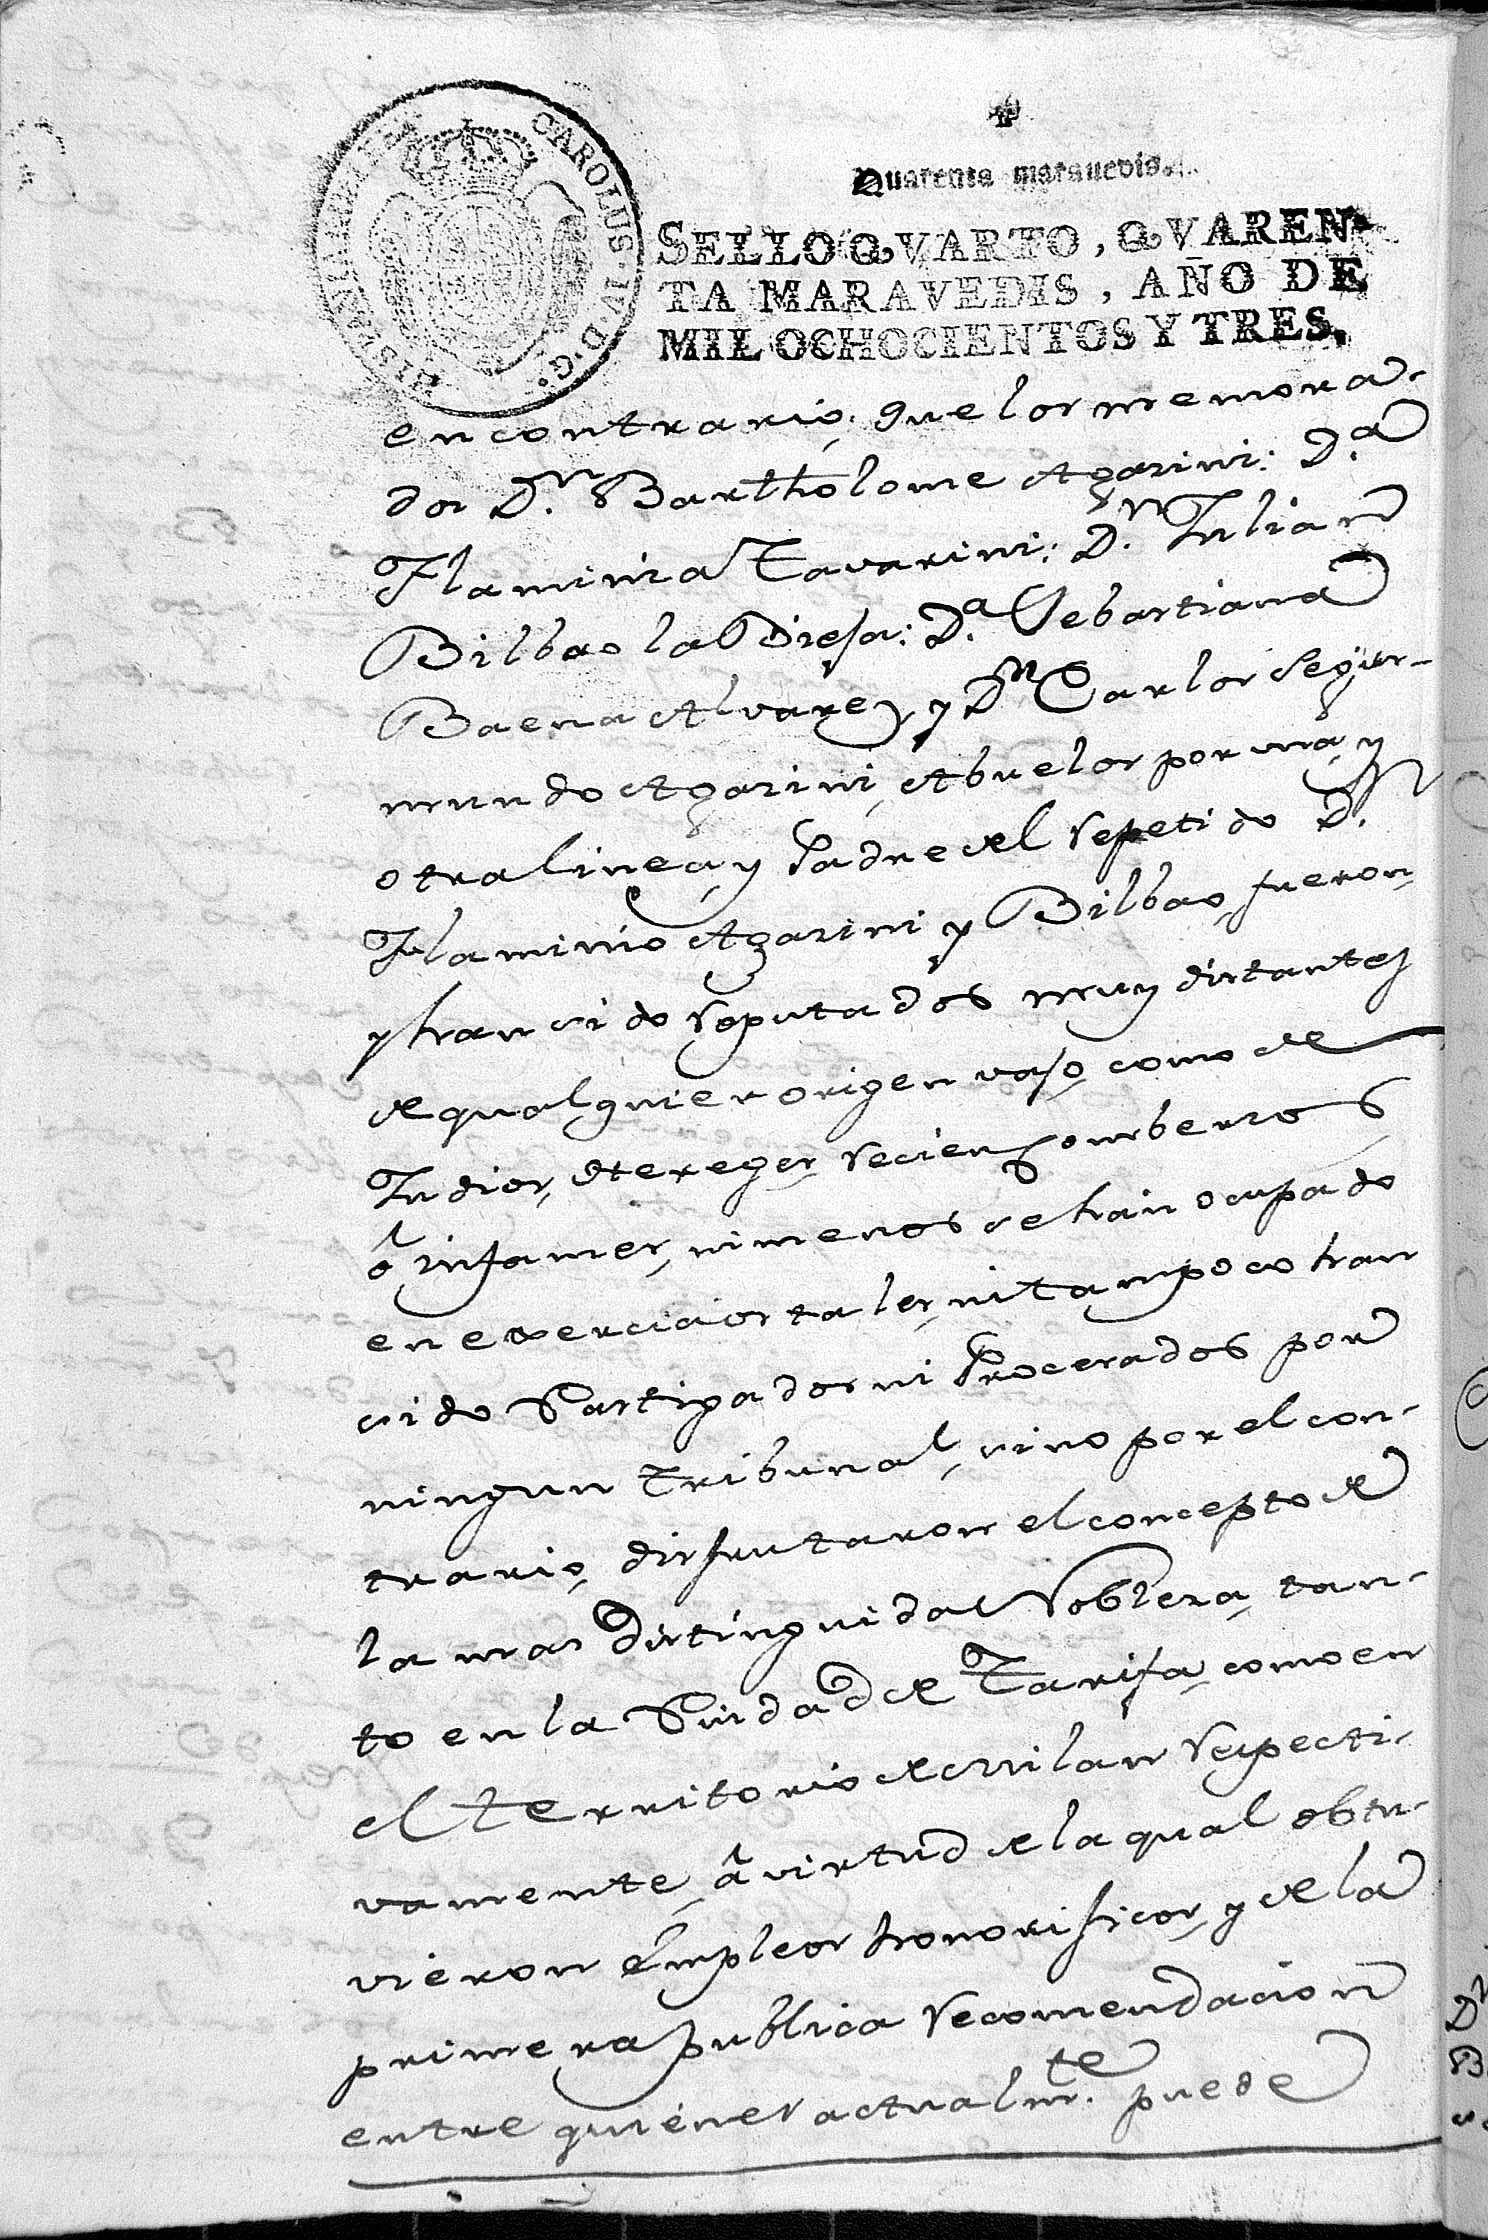 CAROLUS·IV·D·G·
HISPANIAR·REX
Quarenta maravedis.
SELLO QVARTO, QVAREN-
TA MARAVEDIS, AÑO DE
MIL OCHOCIENTOS Y TRES.
en contrario; que los memora-
dos D.n Bartholome Agazini: D.a
Flaminia Tavarini: D.n Julian
Bilbao la Diesa: D.a Sebastiana
Baena Alvarez, y D.n Carlos Segis-
mundo Agazini, Abuelos por una, y
otra linea, y Padre del repetido D.n
Flaminio Agazini y Bilbao, fueron,
y han sido reputados muy distantes
de qualquier origen vaso, como de
Judios, Hereges, recien combersos
ô infames, ni menos se han ocupado
en exercicios tales, ni tampoco han
sido Castigados ni Procesados por
ningun Tribunal, sino por el con-
trario, disfrutaron el concepto de
la mas distinguida Nobleza, tan-
to en la Ciudad de Tarifa, como en
el territorio de Milan respecti-
vamente, â virtud de la qual obtu-
vieron empleos honorificos, y de la
primera publica recomendacion
entre quienes actualm.te puede